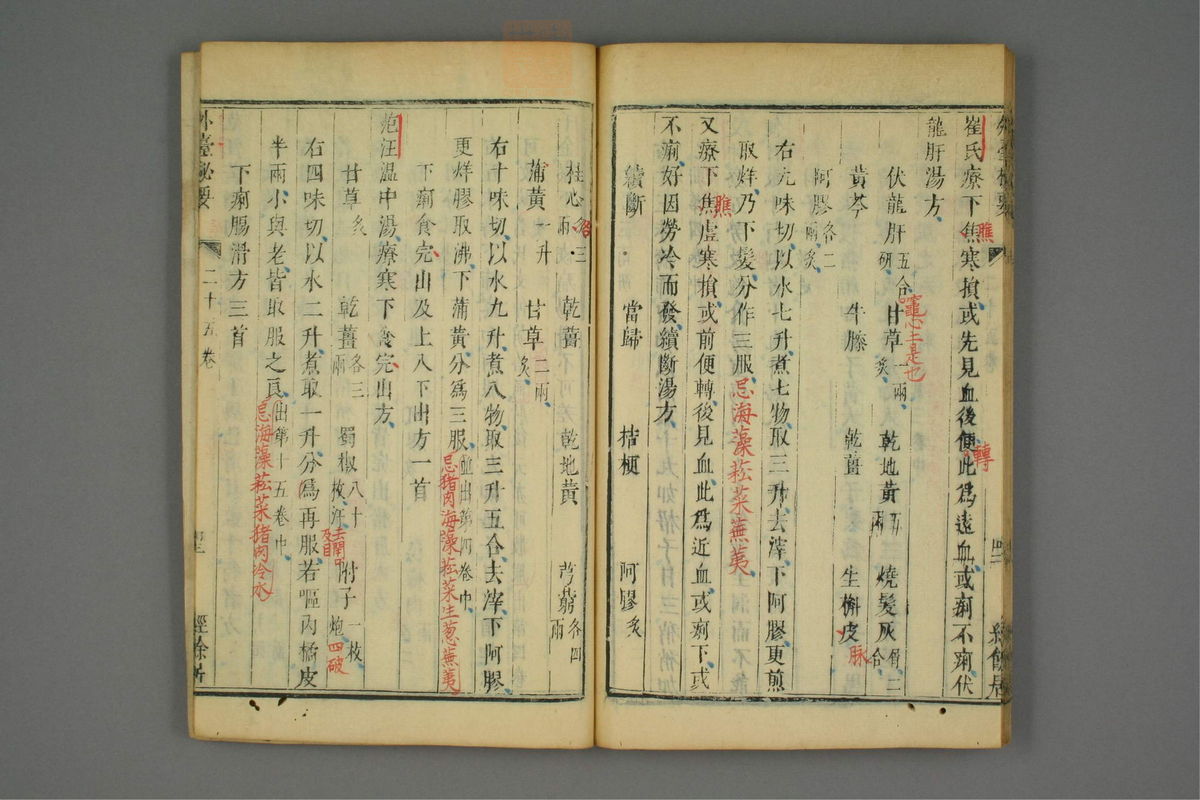 崔氏療下焦寒損或先見血後便此為遠血或痢不痢伏
膲
轉
龍肝湯方
伏龍肝五合研 甘草一兩炙 乾地黃五兩 燒髮灰二合
竈心土是也
黃芩 牛膝 乾薑 生槲皮
脉
阿膠各二兩炙
右九味切以水七升煮七物取三升去滓下阿膠更煎
取烊乃下髮分作三服忌海藻菘菜蕪荑
又療下焦虛寒損或前便轉後見血此為近血或痢下或
膲
不痢好因勞冷而發續斷湯方
續斷 當歸 桔梗 阿膠炙
桂心各三兩 乾薑 乾地黃 芎藭各四兩
蒲黃一升 甘草二兩炙
右十味切以水九升煮八物取三升五合去滓下阿膠
更烊膠取沸下蒲黃分為三服並出第四卷中
忌猪肉海藻菘菜生葱蕪荑
下痢食完出及上入下出方一首
范汪溫中湯療寒下食完出方
甘草炙 乾薑各三兩 蜀椒八十枚汗 附子一枚炮
去閉口及目
四破
右四味切以水二升煮取一升分為再服若嘔內橘皮
半兩小與老皆取服之良出第十五卷中
忌海藻菘菜猪肉冷水
下痢腸滑方三首
外臺秘要
二十五卷
經餘居